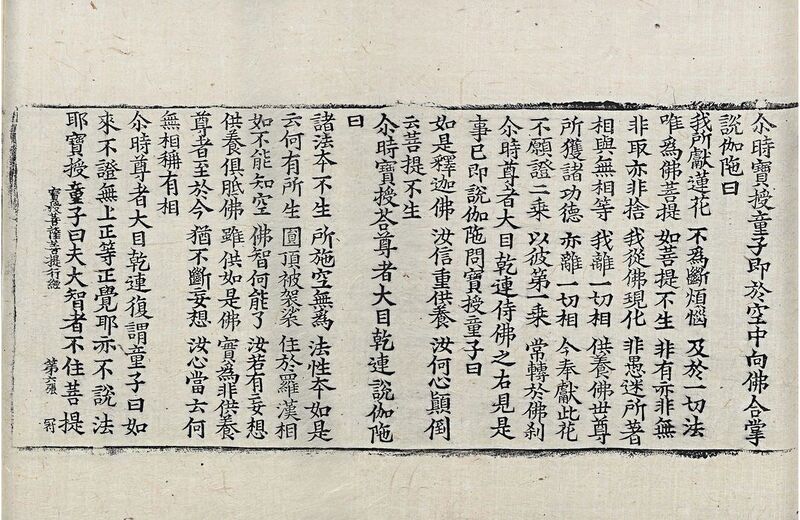 尒時寶授童子即於空中向佛合掌
說伽陁曰
我所獻蓮花 不為斷煩惱 及於一切法
唯為佛菩提 如菩提不生 非有亦非無
非取亦非捨 我從佛現化 非愚迷所著
相與無相等 我離一切相 供養佛世尊
所獲諸功德 亦離一切相 今奉獻此花
不願證二乗 以彼第一乗 常轉於佛刹
尒時尊者大目乾連侍佛之右見是
事已即說伽陁問寶授童子曰
如是釋迦佛 汝信重供養 汝何心顚倒
云菩提不生
尒時寶授荅尊者大目乾連說伽陁
曰
諸法夲不生 所施空無為 法性夲如是
云何有所生 圓頂被袈裟 住於羅漢相
如不能知空 佛智何能了 汝若有妄想
供養俱胝佛 雖供如是佛 實為非供養
尊者至於今 猶不斷妄想 汝心當云何
無相稱有相
尒時尊者大目乾連復謂童子曰如
來不證無上正等正覺耶亦不說法
耶寶授童子曰夫大智者不住菩提
寶授菩薩菩提行經 第六張 冠